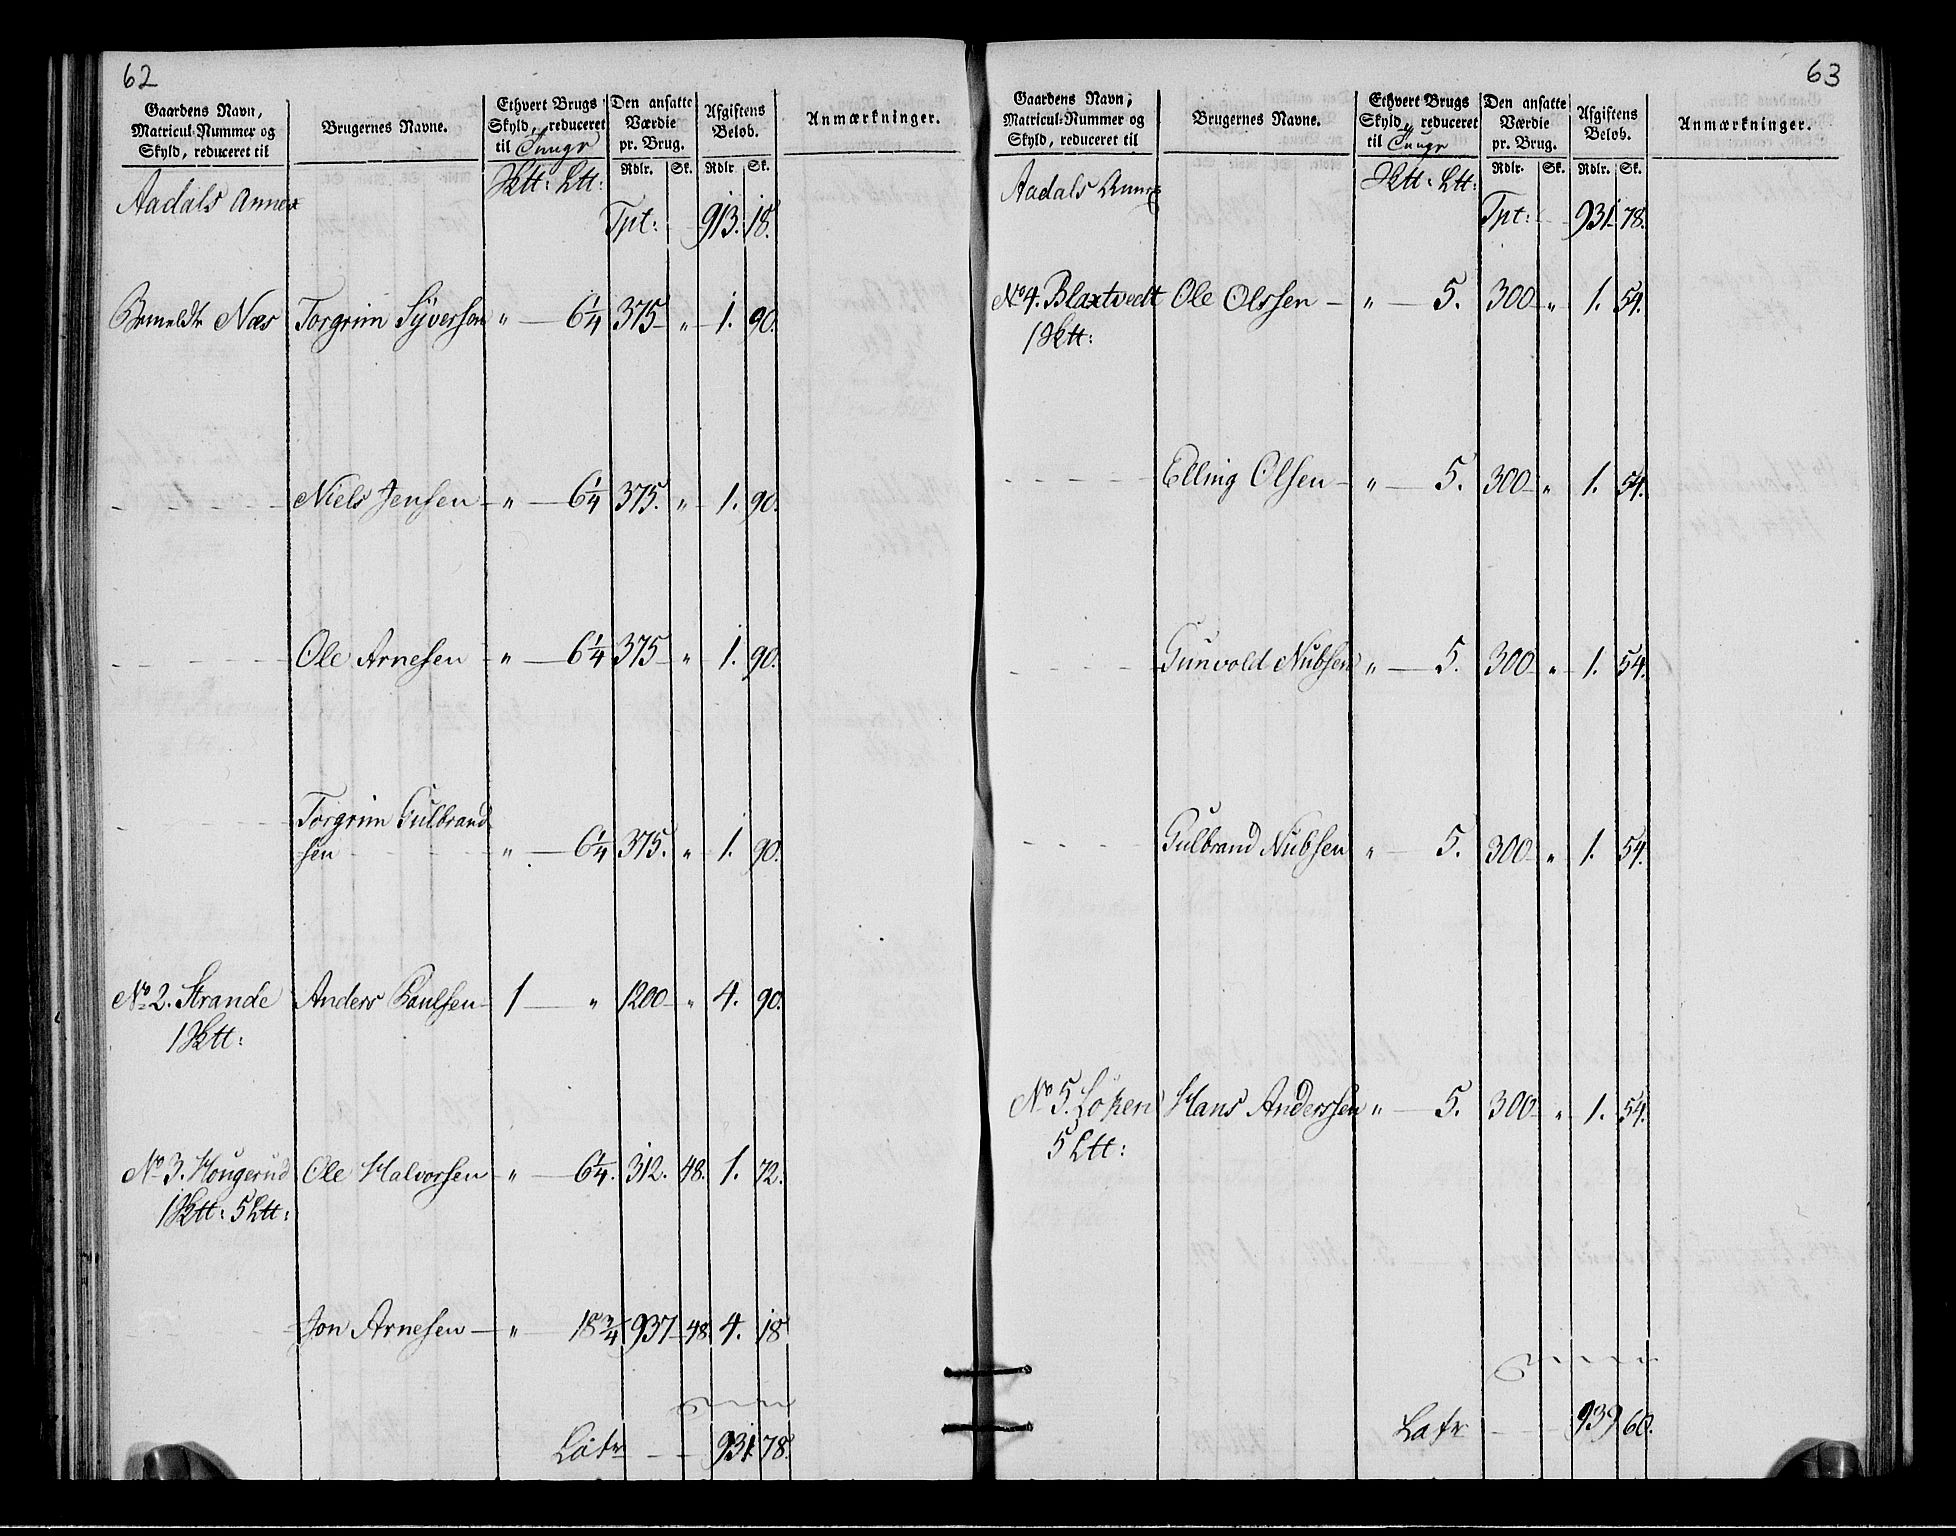 62
Gaardens Navn, Matricul-Nummer og Skyld, reduceret til | Brugernes Navne. | Ethvert Brugs Skyld, reduceret til Tunge | Den ansatte Værdie pr. Brug. | Afgiftens Beløb. | Anmærkninger.
Sktt: Ltt: | Rdlr. | Sk. | Rdlr | Sk.
Aadals Annex
Tpt: 913. 18.
Bemeldte Næs Torgrim Syversen " 6 1/4 375 " 1. 90.
Niels Jensen " 6 1/4 375. " 1. 90.
Ole Arnesen " 6 1/4 375 " 1. 90.
Torgrim Gulbrand
sen " 6 1/4 375. " 1. 90.
No 2. Strande Anders Paulsen 1 " 1200 " 4. 90.
1 Sktt:
No 3. Hougerud Ole Halvorsen " 6 1/4. 312. 48. 1. 72.
1 Sktt: 5 Ltt:
Jon Arnesen " 18 3/4 937 48. 4. 18
Latr 931. 78.
63
Gaardens Navn, Matricul-Nummer og Skyld, reduceret til | Brugernes Navne. | Ethvert Brugs Skyld, reduceret til Tunge | Den ansatte Værdie pr. Brug. | Afgiftens Beløb. | Anmærkninger.
Sktt: Ltt: | Rdlr. | Sk. | Rdlr. | Sk.
Aadals Annex
Tpt: 931. 78.
No 4. Blaxtvedt Ole Olssen " 5. 300 " 1. 54.
1 Sktt:
Elling Olsen " 5. 300 " 1. 54.
Gunvold Nubsen " 5. 300 " 1. 54.
Gulbrand Nubsen " 5. 300 " 1. 54.
No 5. Løken Hans Anderssen " 5. 300 " 1. 54.
5 Ltt:
Latr 939 60.